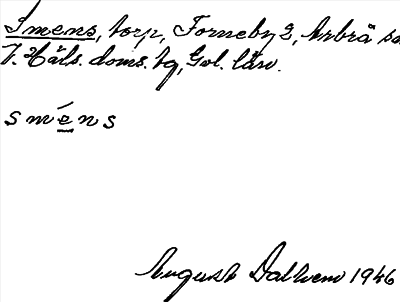 Smens, torp, Forneby 2, Arbrå sn
V. Häls. doms. tg, Gvl. län.
sméns
August Dallvens 1946